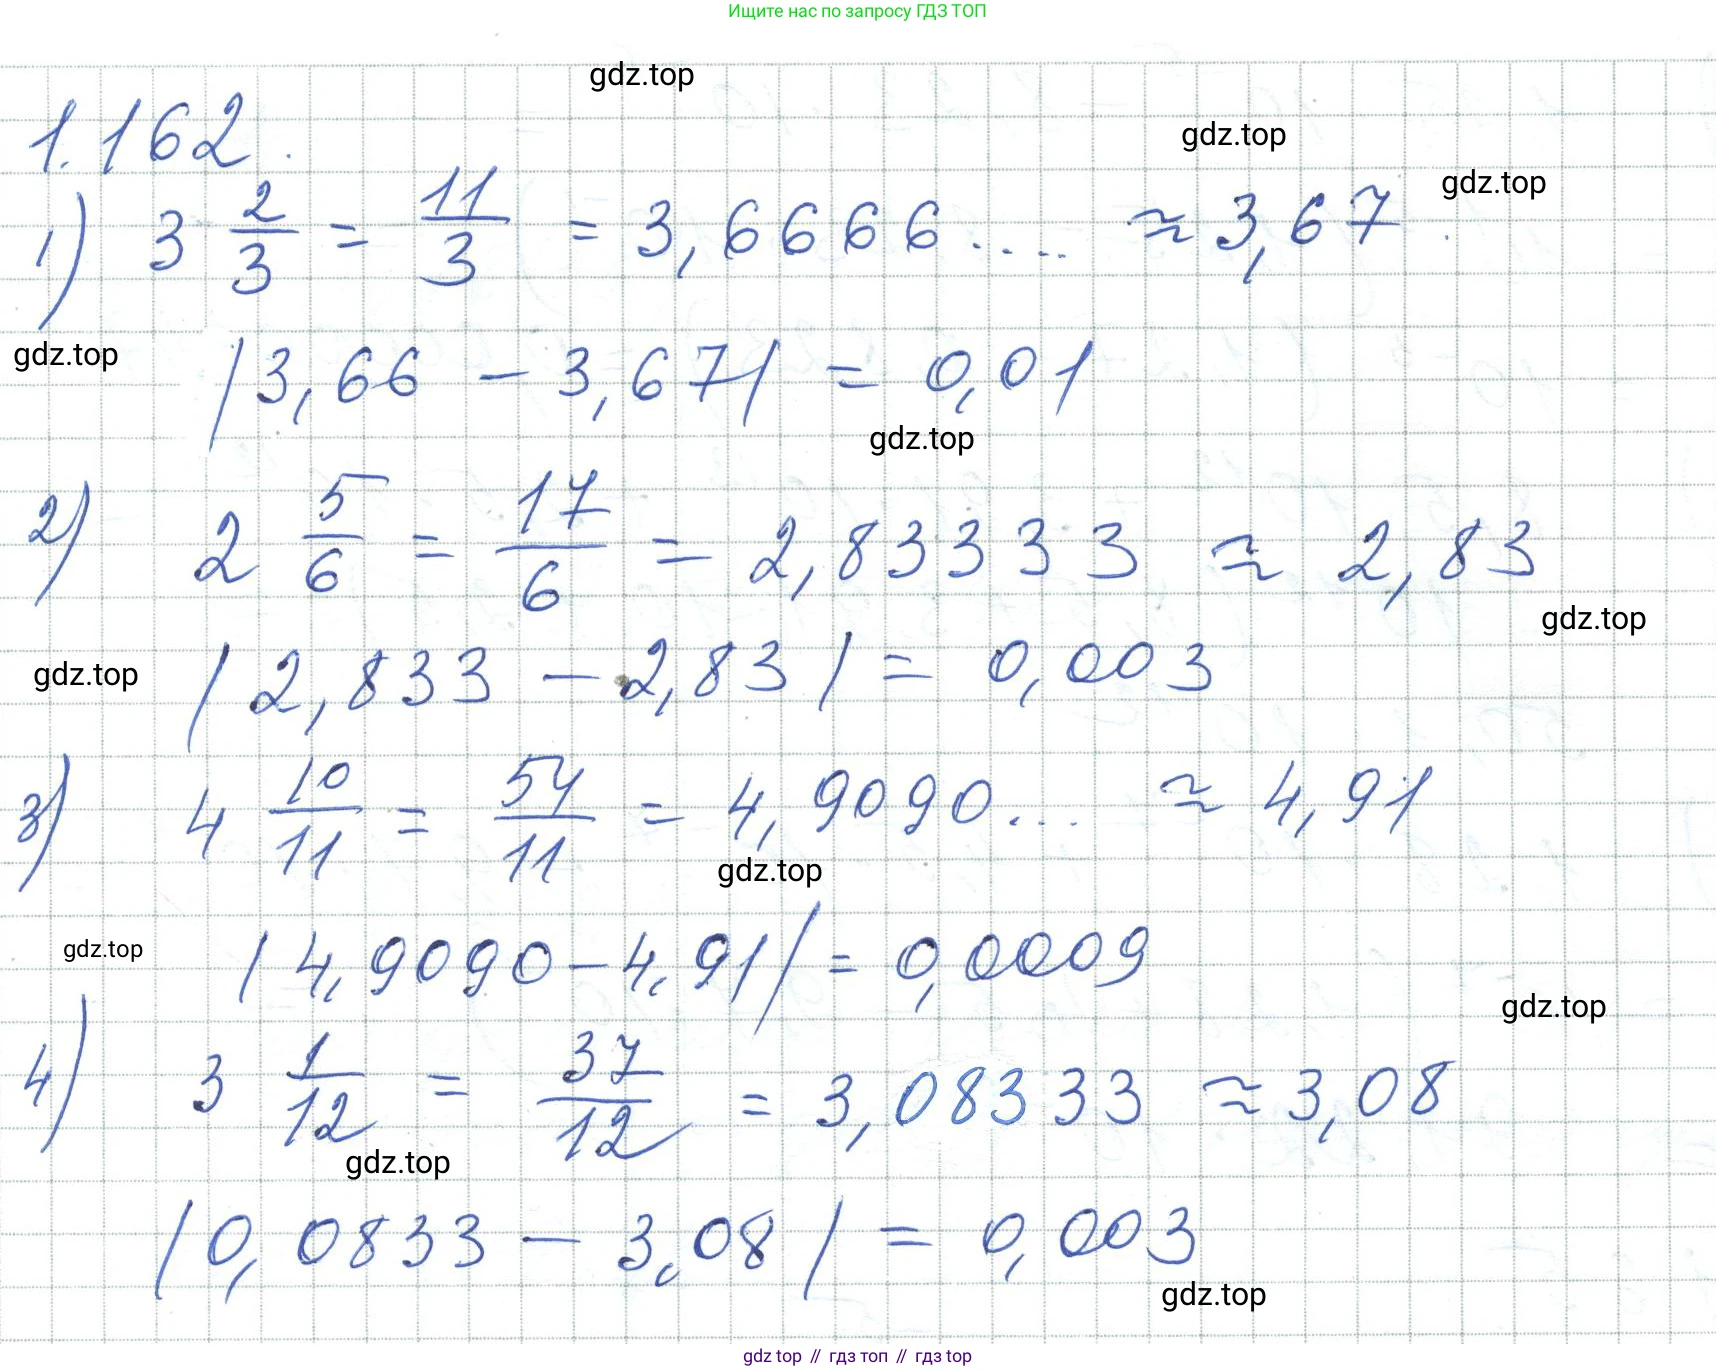 Ищите нас по запросу ГДЗ ТОП
gdz.top
1.162.
gdz.top
gdz.top
1) 3 2/3 = 11/3 = 3,6666.... ≈ 3,67
gdz.top
|3,66 - 3,67| = 0,01
gdz.top
2) 2 5/6 = 17/6 = 2,83333 ≈ 2,83
gdz.top
gdz.top
|2,833 - 2,83| = 0,003
3) 4 10/11 = 54/11 = 4,9090... ≈ 4,91
gdz.top
gdz.top
|4,9090 - 4,91| = 0,0009
gdz.top
4) 3 1/12 = 37/12 = 3,08333 ≈ 3,08
gdz.top
|0,0833 - 3,08| = 0,003
gdz.top
gdz.top // гдз топ // гдз.top